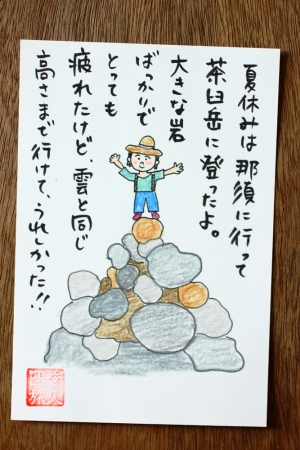 夏休みは那須に行って
茶臼岳に登ったよ。
大きな岩
ばっかりで
とっても
疲れたけど、雲と同じ
高さまで行けて、うれしかった!!